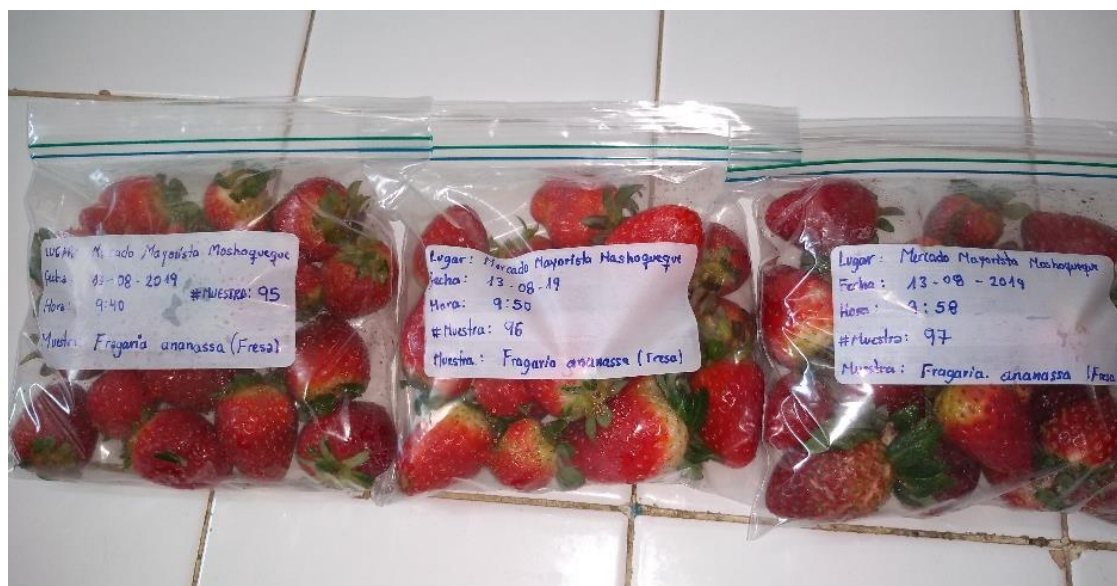 LUGAR: Mercado Mayorista Moshoqueque
Fecha: 13-08-2019
Hora: 9:40 #MUESTRA: 95
Muestra: Fragaria ananassa (Fresa)
Lugar: Mercado Mayorista Moshoqueque
Fecha: 13-08-19
Hora: 9:50
#Muestra: 96
Muestra: Fragaria ananassa (Fresa)
Lugar: Mercado Mayorista Moshoqueque
Fecha: 13-08-2019
Hora: 9:58
#Muestra: 97
Muestra: Fragaria ananassa (Fresa